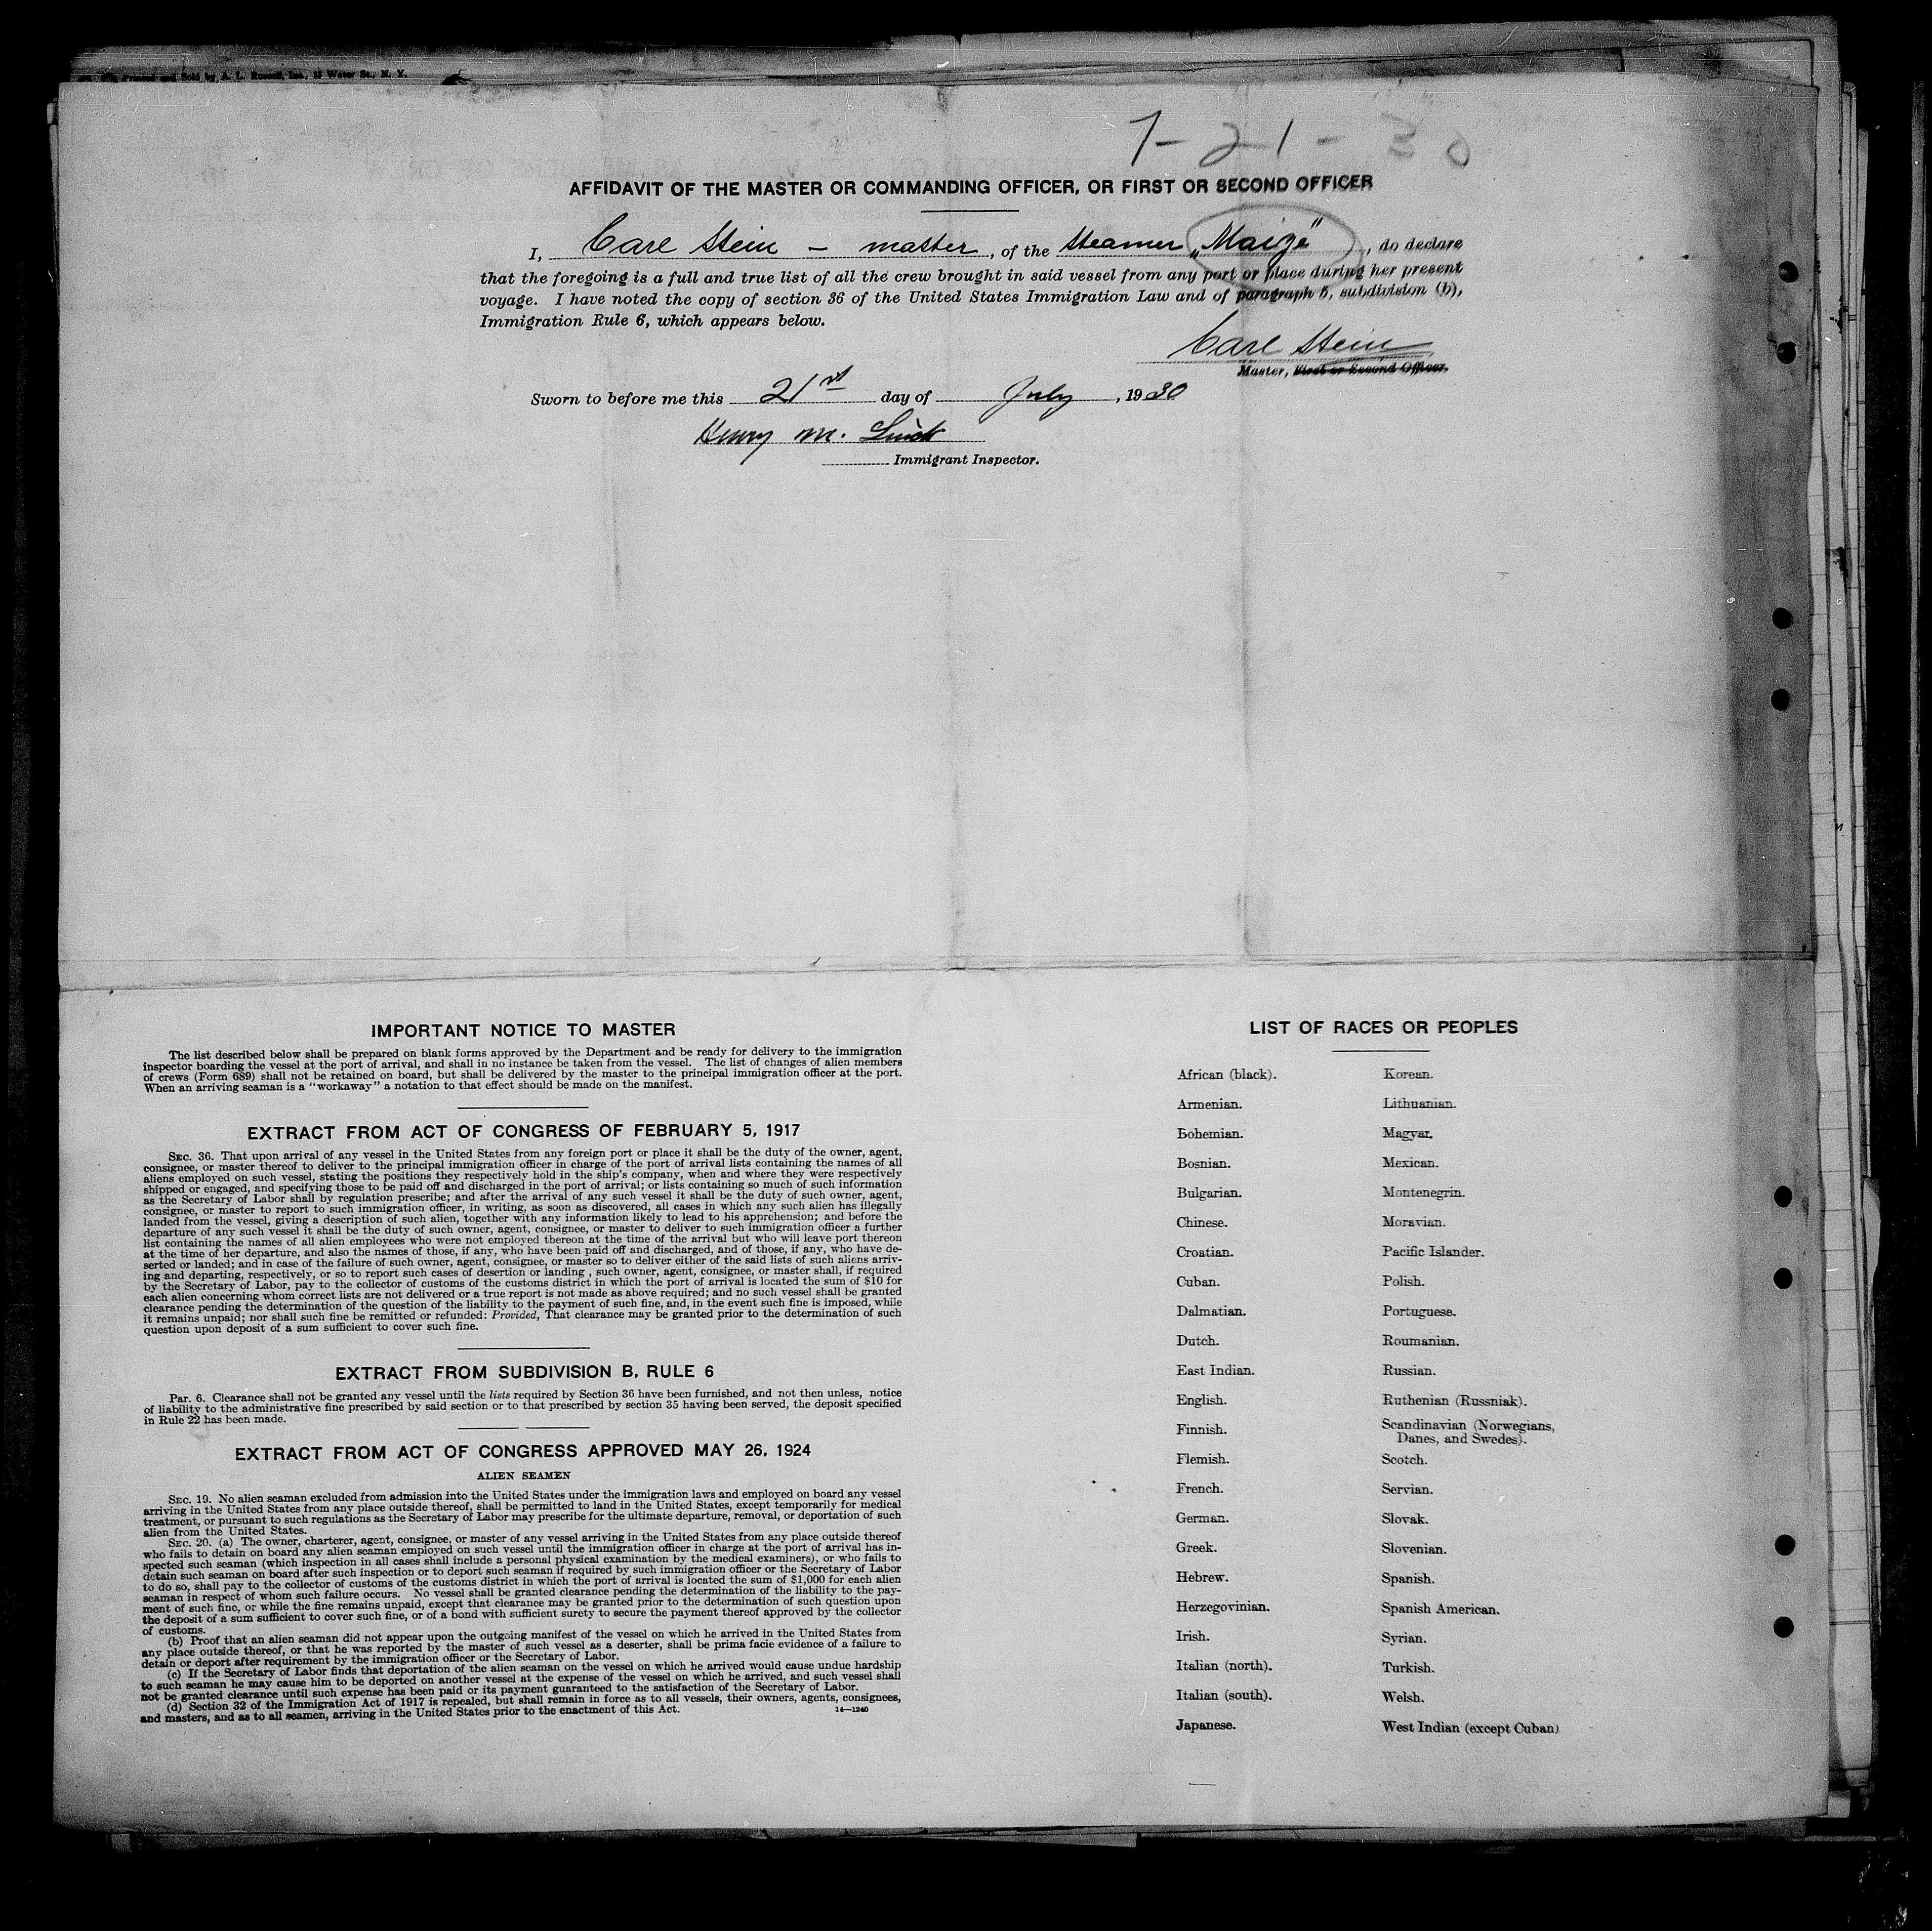 Printed and Sold by A. L. Russell, Inc., 15 Water St., N. Y.
7-21-30
AFFIDAVIT OF THE MASTER OR COMMANDING OFFICER, OR FIRST OR SECOND OFFICER
I, Carl Stein – master, of the steamer „Maize", do declare
that the foregoing is a full and true list of all the crew brought in said vessel from any port or place during her present
voyage. I have noted the copy of section 36 of the United States Immigration Law and of paragraph 5, subdivision (b),
Immigration Rule 6, which appears below.
Carl Stein
Master, First or Second Officer.
Sworn to before me this 21st day of July, 1930
Henry M.
Immigrant Inspector.
IMPORTANT NOTICE TO MASTER
The list described below shall be prepared on blank forms approved by the Department and be ready for delivery to the immigration
inspector boarding the vessel at the port of arrival, and shall in no instance be taken from the vessel. The list of changes of alien members
of crews (Form 689) shall not be retained on board, but shall be delivered by the master to the principal immigration officer at the port.
When an arriving seaman is a "workaway" a notation to that effect should be made on the manifest.
EXTRACT FROM ACT OF CONGRESS OF FEBRUARY 5, 1917
SEC. 36. That upon arrival of any vessel in the United States from any foreign port or place it shall be the duty of the owner, agent,
consignee, or master thereof to deliver to the principal immigration officer in charge of the port of arrival lists containing the names of all
aliens employed on such vessel, stating the positions they respectively hold in the ship's company, when and where they were respectively
shipped or engaged, and specifying those to be paid off and discharged in the port of arrival; or lists containing so much of such information
as the Secretary of Labor shall by regulation prescribe; and after the arrival of any such vessel it shall be the duty of such owner, agent,
consignee, or master to report to such immigration officer, in writing, as soon as discovered, all cases in which any such alien has illegally
landed from the vessel, giving a description of such alien, together with any information likely to lead to his apprehension; and before the
departure of any such vessel it shall be the duty of such owner, agent, consignee, or master to deliver to such immigration officer a further
list containing the names of all alien employees who were not employed thereon at the time of the arrival but who will leave port thereon
at the time of her departure, and also the names of those, if any, who have been paid off and discharged, and of those, if any, who have de-
serted or landed; and in case of the failure of such owner, agent, consignee, or master so to deliver either of the said lists of such aliens arriv-
ing and departing, respectively, or so to report such cases of desertion or landing , such owner, agent, consignee, or master shall, if required
by the Secretary of Labor, pay to the collector of customs of the customs district in which the port of arrival is located the sum of $10 for
each alien concerning whom correct lists are not delivered or a true report is not made as above required; and no such vessel shall be granted
clearance pending the determination of the question of the liability to the payment of such fine, and, in the event such fine is imposed, while
it remains unpaid; nor shall such fine be remitted or refunded: Provided, That clearance may be granted prior to the determination of such
question upon deposit of a sum sufficient to cover such fine.
EXTRACT FROM SUBDIVISION B, RULE 6
Par. 6. Clearance shall not be granted any vessel until the lists required by Section 36 have been furnished, and not then unless, notice
of liability to the administrative fine prescribed by said section or to that prescribed by section 35 having been served, the deposit specified
in Rule 22 has been made.
EXTRACT FROM ACT OF CONGRESS APPROVED MAY 26, 1924
ALIEN SEAMEN
SEC. 19. No alien seaman excluded from admission into the United States under the immigration laws and employed on board any vessel
arriving in the United States from any place outside thereof, shall be permitted to land in the United States, except temporarily for medical
treatment, or pursuant to such regulations as the Secretary of Labor may prescribe for the ultimate departure, removal, or deportation of such
alien from the United States.
SEC. 20. (a) The owner, charterer, agent, consignee, or master of any vessel arriving in the United States from any place outside thereof
who fails to detain on board any alien seaman employed on such vessel until the immigration officer in charge at the port of arrival has in-
spected such seaman (which inspection in all cases shall include a personal physical examination by the medical examiners), or who fails to
detain such seaman on board after such inspection or to deport such seaman if required by such immigration officer or the Secretary of Labor
to do so, shall pay to the collector of customs of the customs district in which the port of arrival is located the sum of $1,000 for each alien
seaman in respect of whom such failure occurs. No vessel shall be granted clearance pending the determination of the liability to the pay-
ment of such fine, or while the fine remains unpaid, except that clearance may be granted prior to the determination of such question upon
the deposit of a sum sufficient to cover such fine, or of a bond with sufficient surety to secure the payment thereof approved by the collector
of customs.
(b) Proof that an alien seaman did not appear upon the outgoing manifest of the vessel on which he arrived in the United States from
any place outside thereof, or that he was reported by the master of such vessel as a deserter, shall be prima facie evidence of a failure to
detain or deport after requirement by the immigration officer or the Secretary of Labor.
(c) If the Secretary of Labor finds that deportation of the alien seaman on the vessel on which he arrived would cause undue hardship
to such seaman he may cause him to be deported on another vessel at the expense of the vessel on which he arrived, and such vessel shall
not be granted clearance until such expense has been paid or its payment guaranteed to the satisfaction of the Secretary of Labor.
(d) Section 32 of the Immigration Act of 1917 is repealed, but shall remain in force as to all vessels, their owners, agents, consignees,
and masters, and as to all seamen, arriving in the United States prior to the enactment of this Act. 14—1240
LIST OF RACES OR PEOPLES
African (black).
Armenian.
Bohemian.
Bosnian.
Bulgarian.
Chinese.
Croatian.
Cuban.
Dalmatian.
Dutch.
East Indian.
English.
Finnish.
Flemish.
French.
German.
Greek.
Hebrew.
Herzegovinian.
Irish.
Italian (north).
Italian (south).
Japanese.
Korean.
Lithuanian.
Magyar.
Mexican.
Montenegrin.
Moravian.
Pacific Islander.
Polish.
Portuguese.
Roumanian.
Russian.
Ruthenian (Russniak).
Scandinavian (Norwegians,
Danes, and Swedes).
Scotch.
Servian.
Slovak.
Slovenian.
Spanish.
Spanish American.
Syrian.
Turkish.
Welsh.
West Indian (except Cuban)